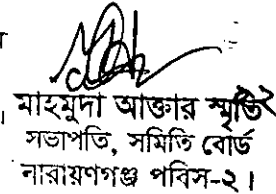 মাহমুদা আক্তার স্মৃতি
সভাপতি, সমিতি বোর্ড
নারায়ণগঞ্জ পবিস-২।